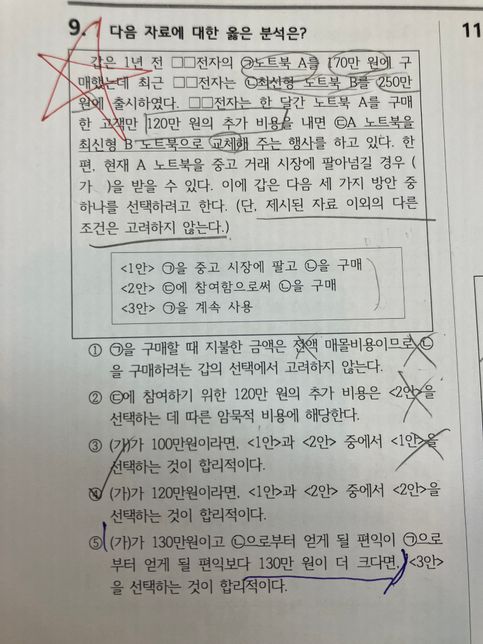 9. 다음 자료에 대한 옳은 분석은?
11
갑은 1년 전 □□전자의 ㉠노트북 A를 170만 원에 구
매했는데 최근 □□전자는 ㉡최신형 노트북 B를 250만
원에 출시하였다. □□전자는 한 달간 노트북 A를 구매
한 고객만 120만 원의 추가 비용을 내면 ㉢A 노트북을
최신형 B 노트북으로 교체해 주는 행사를 하고 있다. 한
편, 현재 A 노트북을 중고 거래 시장에 팔아넘길 경우 (
가 )을 받을 수 있다. 이에 갑은 다음 세 가지 방안 중
하나를 선택하려고 한다. (단, 제시된 자료 이외의 다른
조건은 고려하지 않는다.)
<1안> ㉠을 중고 시장에 팔고 ㉡을 구매
<2안> ㉢에 참여함으로써 ㉡을 구매
<3안> ㉠을 계속 사용
① ㉠을 구매할 때 지불한 금액은 전액 매몰비용이므로 ㉡
을 구매하려는 갑의 선택에서 고려하지 않는다.
② ㉢에 참여하기 위한 120만 원의 추가 비용은 <2안>을
선택하는 데 따른 암묵적 비용에 해당한다.
③ (가)가 100만원이라면, <1안>과 <2안> 중에서 <1안>을
선택하는 것이 합리적이다.
④ (가)가 120만원이라면, <1안>과 <2안> 중에서 <2안>을
선택하는 것이 합리적이다.
⑤ (가)가 130만원이고 ㉡으로부터 얻게 될 편익이 ㉠으로
부터 얻게 될 편익보다 130만 원이 더 크다면, <3안>
을 선택하는 것이 합리적이다.